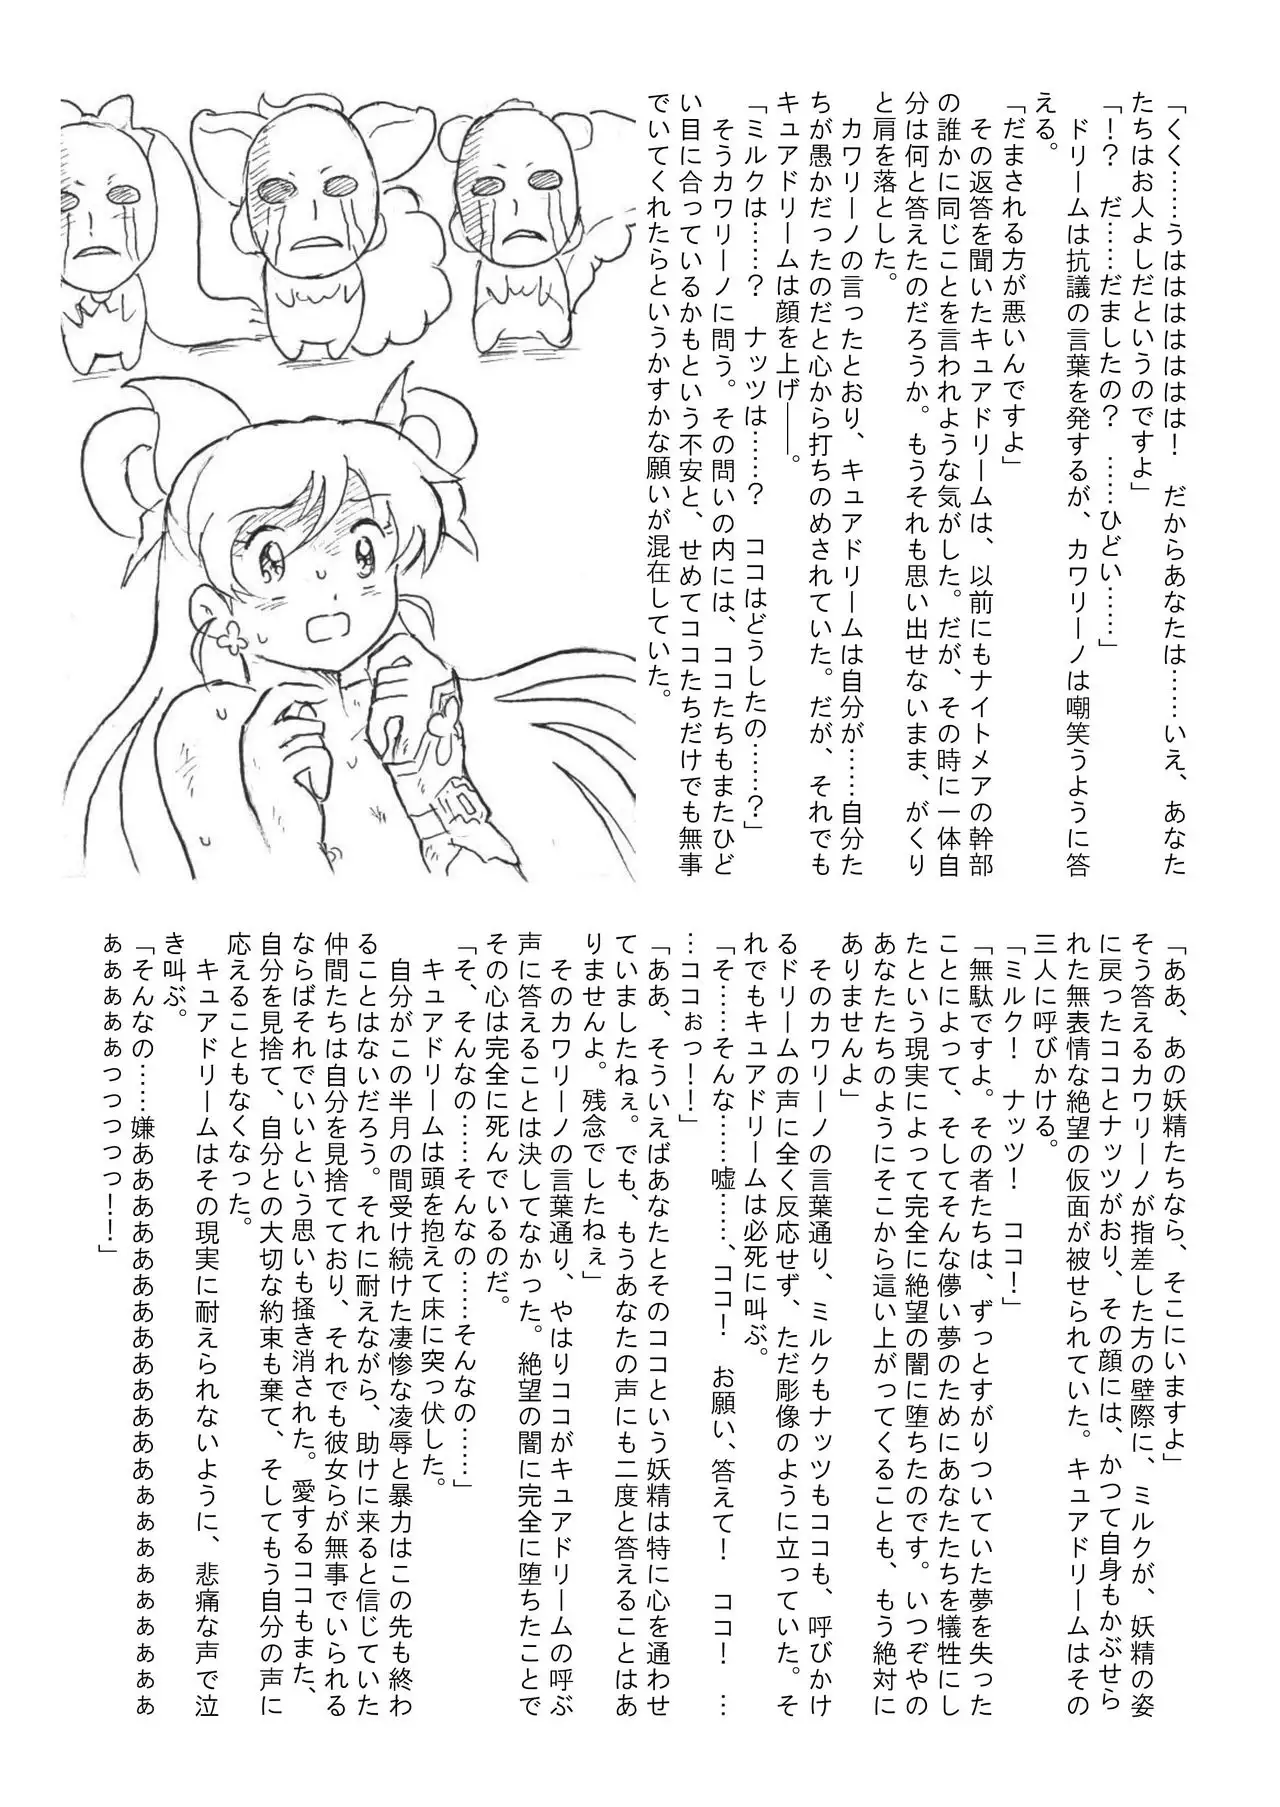 「くく……うはははははは！　だからあなたは……いえ、あなた
たちはお人よしだというのですよ」
「！？　だ……だましたの？　……ひどい……」
　ドリームは抗議の言葉を発するが、カワリーノは嘲笑うように答
える。
「だまされる方が悪いんですよ」
　その返答を聞いたキュアドリームは、以前にもナイトメアの幹部
の誰かに同じことを言われような気がした。だが、その時に一体自
分は何と答えたのだろうか。もうそれも思い出せないまま、がくり
と肩を落とした。
　カワリーノの言ったとおり、キュアドリームは自分が……自分た
ちが愚かだったのだと心から打ちのめされていた。だが、それでも
キュアドリームは顔を上げ――。
「ミルクは……？　ナッツは……？　ココはどうしたの……？」
　そうカワリーノに問う。その問いの内には、ココたちもまたひど
い目に合っているかもという不安と、せめてココたちだけでも無事
でいてくれたらというかすかな願いが混在していた。
「ああ、あの妖精たちなら、そこにいますよ」
そう答えるカワリーノが指差した方の壁際に、ミルクが、妖精の姿
に戻ったココとナッツがおり、その顔には、かつて自身もかぶせら
れた無表情な絶望の仮面が被せられていた。キュアドリームはその
三人に呼びかける。
「ミルク！　ナッツ！　ココ！」
「無駄ですよ。その者たちは、ずっとすがりついていた夢を失った
ことによって、そしてそんな儚い夢のためにあなたたちを犠牲にし
たという現実によって完全に絶望の闇に堕ちたのです。いつぞやの
あなたたちのようにそこから這い上がってくることも、もう絶対に
ありませんよ」
　そのカワリーノの言葉通り、ミルクもナッツもココも、呼びかけ
るドリームの声に全く反応せず、ただ彫像のように立っていた。そ
れでもキュアドリームは必死に叫ぶ。
「そ……そんな……嘘……、ココ！　お願い、答えて！　ココ！　…
…ココぉっ！！」
「ああ、そういえばあなたとそのココという妖精は特に心を通わせ
ていましたねぇ。でも、もうあなたの声にも二度と答えることはあ
りませんよ。残念でしたねぇ」
　そのカワリーノの言葉通り、やはりココがキュアドリームの呼ぶ
声に答えることは決してなかった。絶望の闇に完全に堕ちたことで
その心は完全に死んでいるのだ。
「そ、そんなの……そんなの……そんなの……」
　キュアドリームは頭を抱えて床に突っ伏した。
　自分がこの半月の間受け続けた凄惨な凌辱と暴力はこの先も終わ
ることはないだろう。それに耐えながら、助けに来ると信じていた
仲間たちは自分を見捨てており、それでも彼女らが無事でいられる
ならばそれでいいという思いも掻き消された。愛するココもまた、
自分を見捨て、自分との大切な約束も棄て、そしてもう自分の声に
応えることもなくなった。
　キュアドリームはその現実に耐えられないように、悲痛な声で泣
き叫ぶ。
「そんなの……嫌ああああああああああああぁぁぁぁぁぁぁぁ
ぁぁぁぁぁぁっっっっっ！！！」